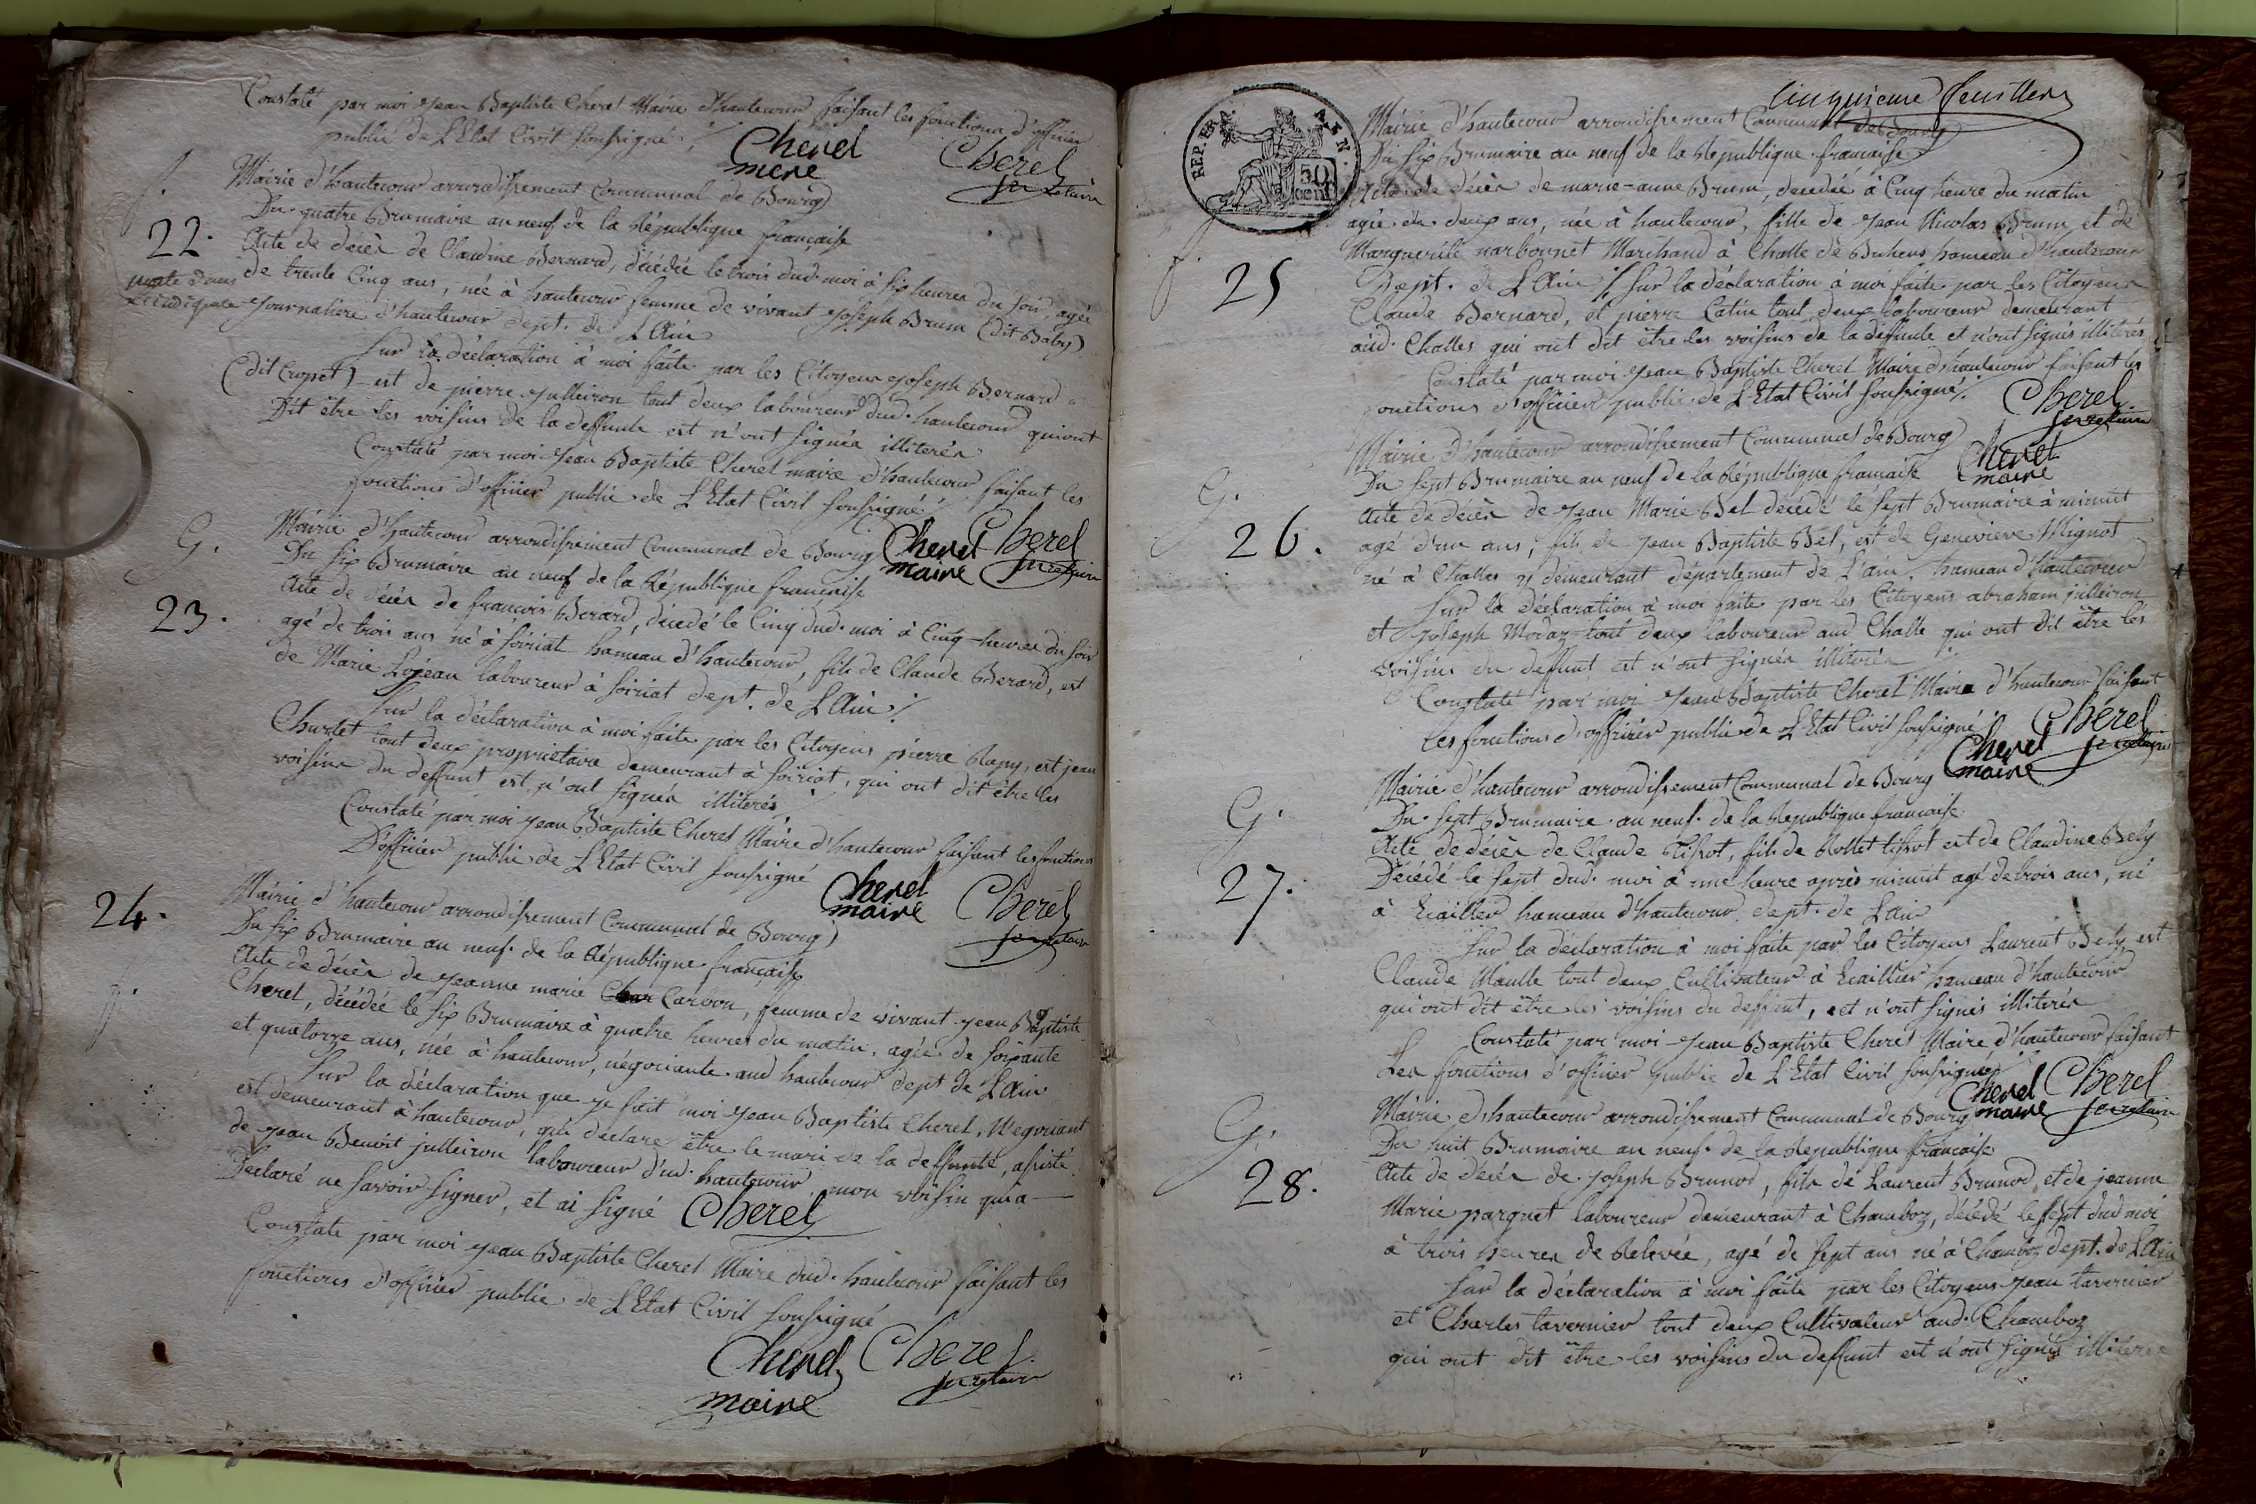 Constaté par moi Jean Baptiste Cherel Maire d'hautecour faisant les fonctions d'officier
public de L'Etat Civil soussigné ./.
Cherel
mere
Cherel
secretaire
f.
22.
Mairie d'hautecour arrondissement Communal de Bourg
Du quatre Brumaire an neuf de la République française
Acte de décès de Claudine Bernard, décédée le trois dud. moi à six heures du soir, agée
de trente Cinq ans, née à hautecour femme de vivant Joseph Brun (dit Baby)
Journaliere d'hautecour dept. de L'Ain
morte dans
L'indigence
Sur la déclaration à moi faite par les Citoyens Joseph Bernard
(dit Cropet) est de pierre Julleiron tout deux laboureur dud. hautecour qui ont
Dit être les voisins de la deffunte est n'ont signés illiterés
Constaté par moi Jean Baptiste Cherel maire d'hautecour faisant les
fonctions d'officier public de L'Etat Civil soussigné ./.
Cherel
maire
Cherel
secretaire
G.
23.
Mairie d'hautecour arrondissement Communal de Bourg
Du six Brumaire an neuf de la République française
Acte de décès de françois Berard, décédé le Cinq dud. moi à Cinq heures du soir
agé de trois ans né à soiriat hameau d'hautecour, fils de Claude Berard, est
de Marie Lojean laboureur à soiriat dept. de L'Ain ./.
Sur la déclaration à moi faite par les Citoyens pierre Rapy, est jean
Churlet tout deux propriétaire demeurant à soiriat, qui ont dit être les
voisins du deffunt est n'ont signés illiterés
Constaté par moi Jean Baptiste Cherel Maire d'hautecour faisant les fonctions
D'officier public de L'Etat Civil soussigné
Cherel
maire
Cherel
secretaire
24.
f.
Mairie d'hautecour arrondissement Communal de Bourg
Du six Brumaire an neuf de la République française
Acte de décès de Jeanne marie Carbon, femme de vivant Jean Baptiste
Cherel, décédée le six Brumaire à quatre heures du matin, agée de soixante
et quatorze ans, née à hautecour, négociante aud hautecour dept de L'Ain
Sur la déclaration que je fait moi Jean Baptiste Cherel, Negociant
est demeurant à hautecour, qui declare être le mari de la deffunte, assisté
de Jean Benoit julleiron laboureur d'ud. hautecour mon voisin qui a
Declaré ne savoir signer, et ai signé Cherel
Constaté par moi Jean Baptiste Cherel Maire dud. hautecour faisant les
fonctions d'officier public de L'Etat Civil soussigné
Cherel
maire
Cherel
secretaire
Cinquieme feuillet
REP. FRA.
AIN.
50
CENT
Mairie d'hautecour arrondissement Communal de Bourg
Du six Brumaire an neuf de la République française
Acte de décès de marie-anne Brun, decedée à Cinq heure du matin
agée de deux ans, née à hautecour, fille de Jean Nicolas Brun, et de
Marguerite narbonnet Marchand à Challe de Bohens hameau d'hautecour
Dept. de L'Ain ./. Sur la déclaration à moi faite par les Citoyens
f.
25
Claude Bernard, et pierre Catin tout deux laboureur demeurant
aud. Challes qui ont dit être les voisins de la deffunte et n'ont signés illiterés
Constaté par moi Jean Baptiste Cherel Maire d'hautecour faisant les
fonctions d'officier public de L'Etat Civil soussigné ./.
Cherel
secretaire
Cherel
maire
G.
26.
Mairie d'hautecour arrondissement Communal de Bourg
Du sept Brumaire an neuf de la République francaise
Acte de décès de Jean Marie Bel décédé le sept Brumaire à minuit
agé d'un ans, fils de Jean Baptiste Bel, est de Genevieve Mignot
né à Challes y demeurant département de L'ain, hameau d'hautecour
Sur la déclaration à moi faite par les Citoyens abraham julleiron
et Joseph Modaz tout deux laboureur aud Challe qui ont dit être les
voisins du deffunt est n'ont signés illiterés
Constaté par moi Jean Baptiste Cherel Maire d'hautecour faisant
les fonctions d'officier public de L'Etat Civil soussigné ./.
Cherel
maire
Cherel
secretaire
G.
27.
Mairie d'hautecour arrondissement Communal de Bourg
Du sept Brumaire an neuf de la République francaise
Acte de décès de Claude Tissot, fils de Rollet tissot est de Claudine Bely
Décédé le sept dud. moi à une heure après minuit agé de trois ans, né
à Eciallier hameau d'hautecour dept. de L'ain
Sur la déclaration à moi faite par les Citoyens Laurent Bely est
Claude Maulle tout deux Cultivateur à hameau d'hautecour
qui ont dit être les voisins du deffunt, et n'ont signés illiterés
Constaté par moi Jean Baptiste Cherel Maire d'hautecour faisant
Les fonctions d'officier public de L'Etat Civil soussigné
Cherel
maire
Cherel
secretaire
G.
28.
Mairie d'hautecour arrondissement Communal de Bourg
Du huit Brumaire an neuf de la République francaise
Acte de décès de Joseph Brunod, fils de Laurent Brunod, et de jeanne
Marie parquet laboureur demeurant à Chamboz, décédé le sept dud moi
à trois heures de Relevée, agé de sept ans né à Chamboz dept. de L'Ain
Sur la déclaration à moi faite par les Citoyens Jean tavernier
et Charles tavernier tout deux Cultivateur aud. Chamboz
qui ont dit être les voisins du deffunt est n'ont signés illiterés